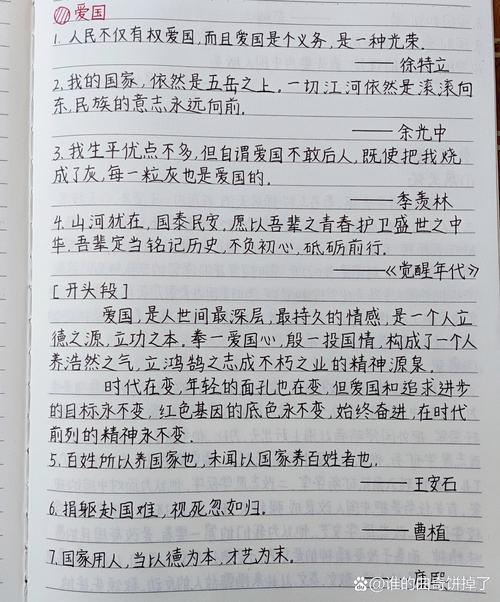 爱国
1. 人民不仅有权爱国,而且爱国是个义务,是一种光荣.
——徐特立
2.我的国家,依然是五岳之上.一切江河依然是滚滚向
东,民族的意志永远向前.
——余光中
3.我生平优点不多,但自谓爱国不敢后人,既使把我烧
成了灰,每一粒灰也是爱国的.
——季羡林
4.山河犹在,国泰民安,愿以吾辈之青春护卫盛世之中
华.吾辈定当铭记历史,不负初心,砥砺前行.
——《觉醒年代》
[开头段]
爱国,是人世间最深层,最持久的情感,是一个人立
德之源,立功之本.奉一爱国心,殷一投国情,构成了一个人
养浩然之气,立鸿鹄之志成不朽之业的精神源泉.
时代在变,年轻的面孔也在变,但爱国和追求进步
的目标永不变,红色基因的底色永不变,始终奋进,在时代
前列的精神永不变.
5.百姓所以养国家也,未闻以国家养百姓者也.
——王安石
6.捐躯赴国难,视死忽如归.
——曹植
7.国家用人,当以德为本,才艺为末.
康熙
@谁的曲奇饼掉了